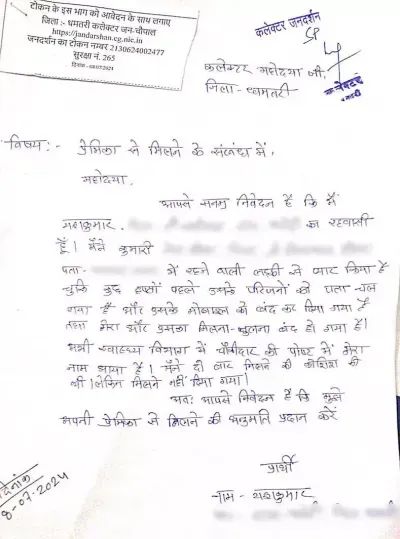 टोकन के इस भाग को आवेदन के साथ लगाए
जिला :- धमतरी कलेक्टर जन-चौपाल
https://jandarshan.cg.nic.in
जनदर्शन का टोकन नम्बर 2130624002477
सुरक्षा नं. 265
दिनांक - 08/07/2024
कलेक्टर जनदर्शन
कलेक्टर
धमतरी
कलेक्टर महोदया जी,
जिला - धमतरी
विषय:- प्रेमिका से मिलने के संबंध में,
महोदया,
आपसे सनम्र निवेदन है कि मैं
यशकुमार का रहवासी
हूँ। मैंने कुमारी
पता- में रहने वाली लड़की से प्यार किया है
चूंकि कुछ हफ्तों पहले उसके परिजनों को पता चल
गया है और उसके मोबाइल को बंद कर दिया गया है
तथा मेरा और उसका मिलना-जुलना बंद हो गया है।
अभी स्वास्थ्य विभाग में चौकीदार की पोस्ट में मेरा
नाम आया है। मैंने दो बार मिलने की कोशिश की
थी। लेकिन मिलने नहीं दिया गया।
अतः आपसे निवेदन है कि मुझे
अपनी प्रेमिका से मिलने की अनुमति प्रदान करें
प्रार्थी
नाम - यशकुमार
दिनांक
8-07-2024